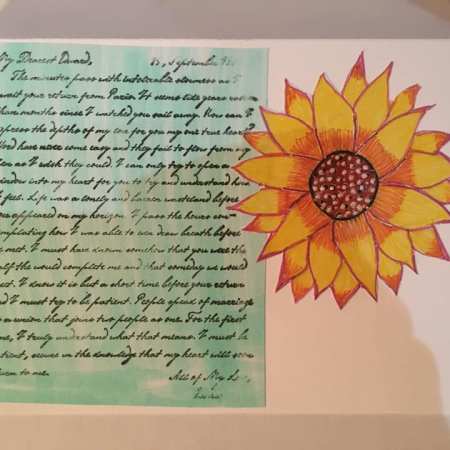 My Dearest Edward, September
The minutes pass with intolerable slowness as I
await your return from Paris. It seems like years rather
than months since I watched you sail away. How can I
express the depths of my love for you my one true heart?
Words have never come easy and they fail to flow from my
pen as I wish they could. I can only try to open a
window into my heart for you to try and understand how
I feel. Life was a lonely and barren wasteland before
you appeared on my horizon. I pass the hours con-
templating how I was able to even draw breath before
we met. I must have known somehow that you were the
half the would complete me and that someday we would
meet. I know it is but a short time before your return
and I must try to be patient. People speak of marriage
as a union that joins two people as one. For the first
time, I truly understand what that means. I must be
patient, secure in the knowledge that my heart will soon
return to me.
All of My Love,